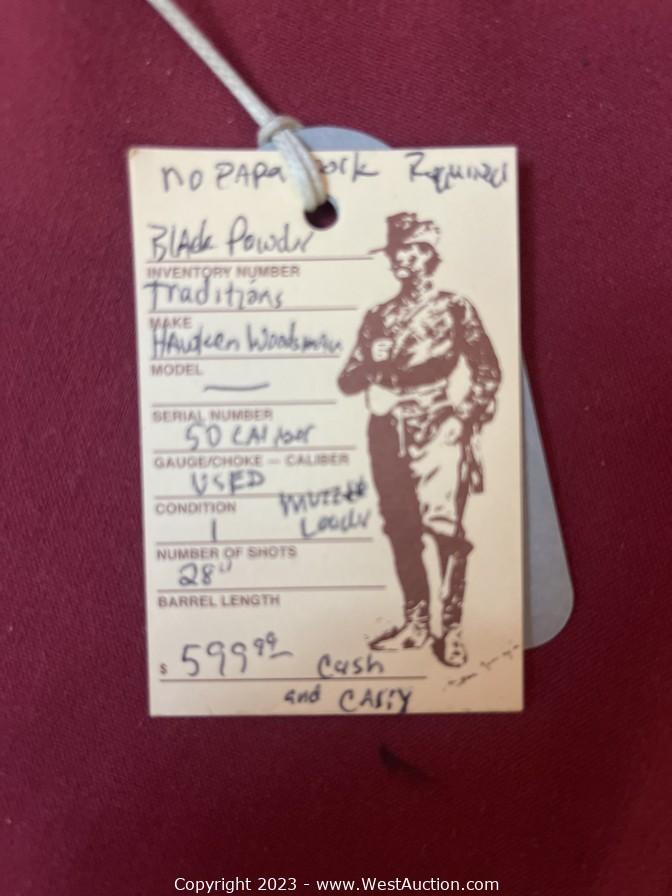 no PAPA ork Required
Black Powdr
INVENTORY NUMBER
Traditions
MAKE
Hawken Woodsman
MODEL
—
SERIAL NUMBER
50 CAliber
GAUGE/CHOKE — CALIBER
USED
CONDITION
muzzle
Loadr
1
NUMBER OF SHOTS
28"
BARREL LENGTH
$ 599 99 Cash
and CArry
Copyright 2023 - www.WestAuction.com